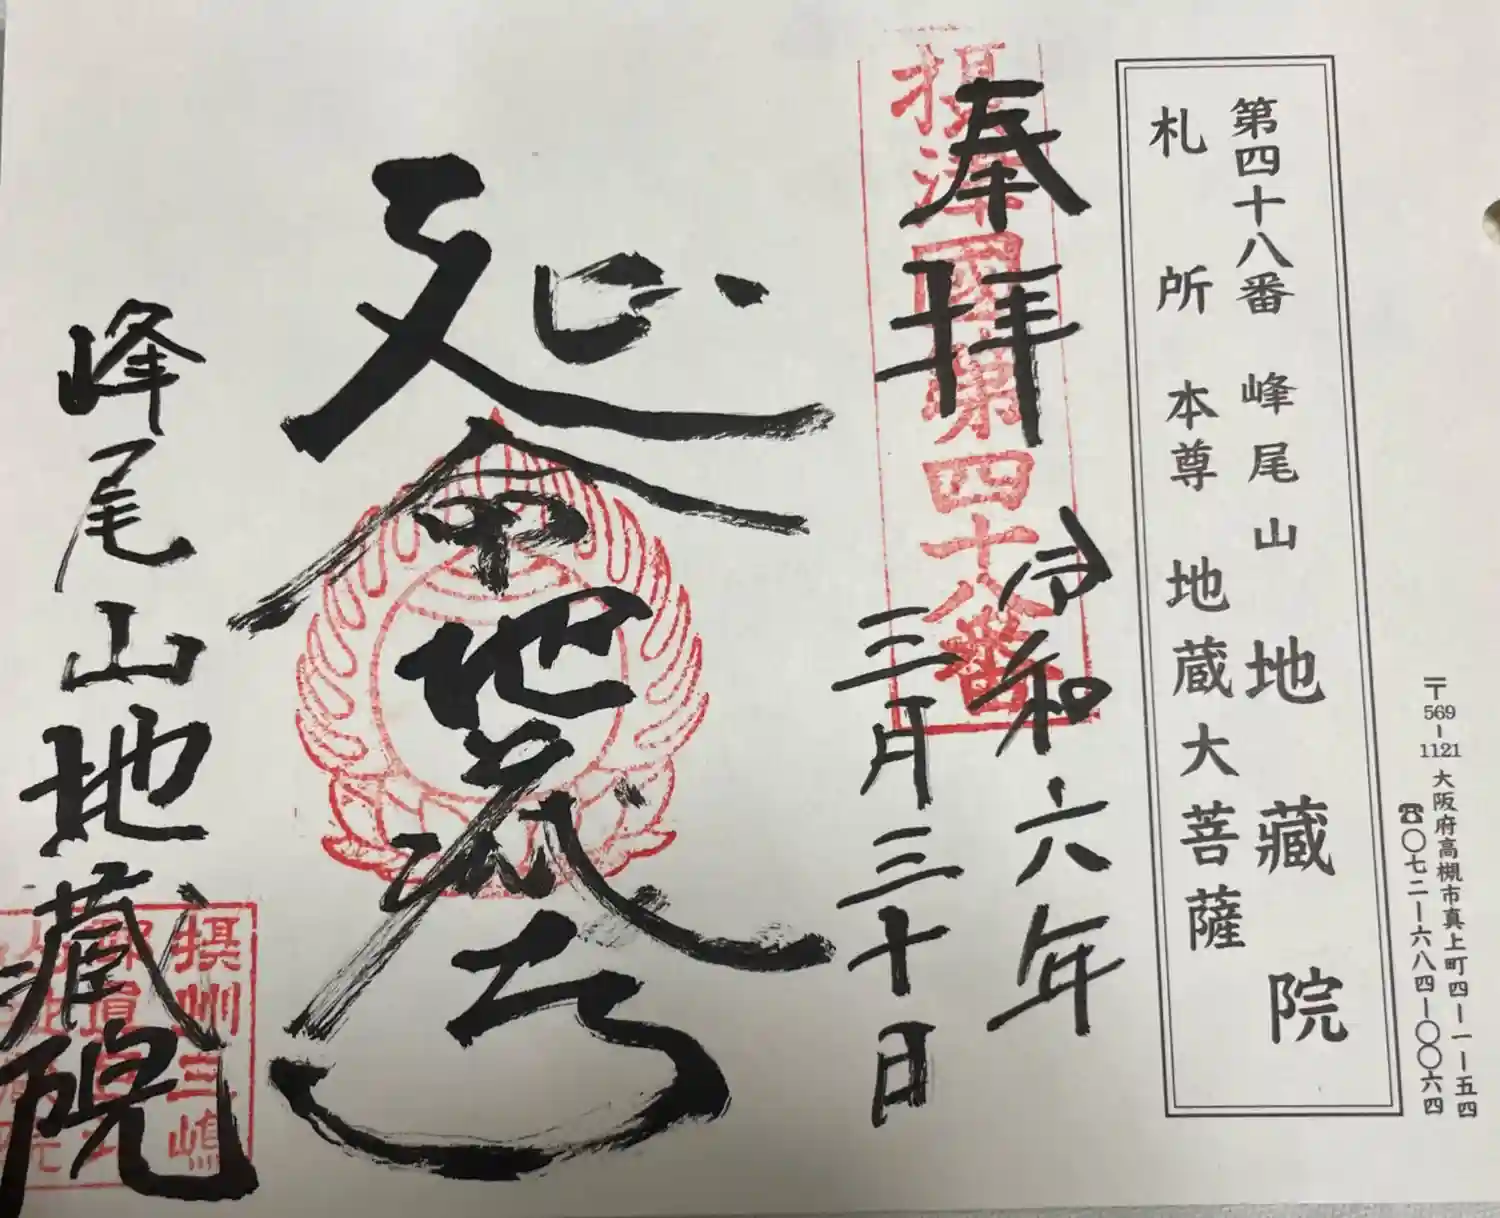 〒569-1121 大阪府高槻市真上町四ー一ー五四
☎〇七二ー六八四ー〇〇六四
第四十八番 峰尾山 地藏院
札所本尊 地蔵大菩薩
奉拝
摂津國第四十八番
令和六年
三月三十日
延命地蔵
峰尾山地蔵院
摂州三嶋